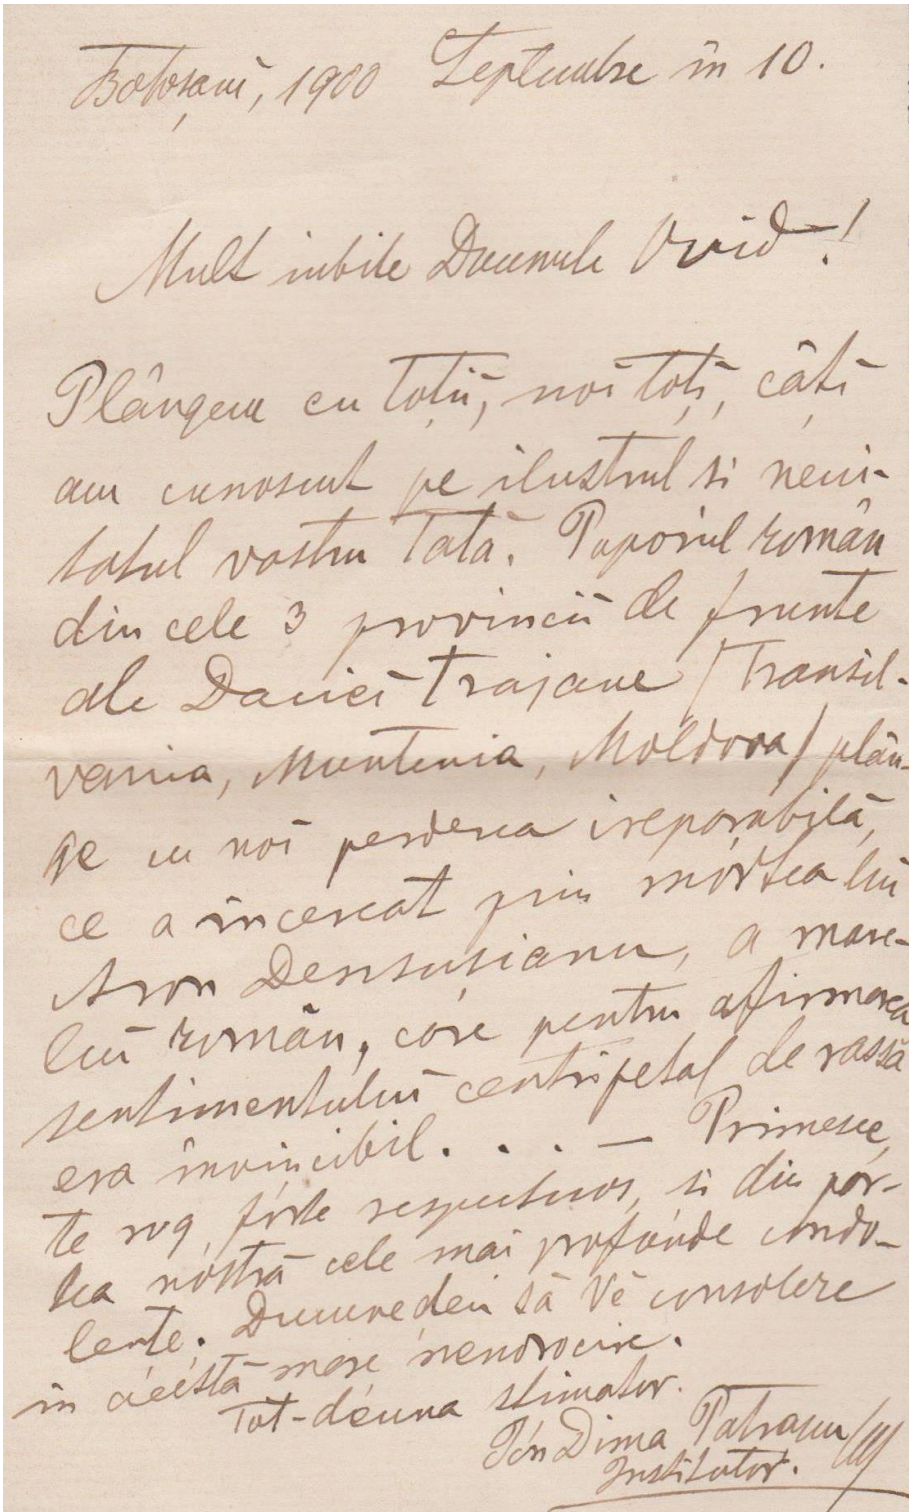 Botoșanĭ, 1900 Septembre în 10.
Mult iubite Domnule Ovid!
Plângem cu toțiĭ, noĭ toțĭ, câțĭ
am cunoscut pe ilustrul si neui-
tatul vostru Tată. Poporul român
din cele 3 provinciĭ de frunte
ale Dacieĭ Traiane /Transil-
vania, Muntenia, Moldova/ plân-
ge cu noĭ perderea ireparabilă,
ce a încercat prin mórtea luĭ
Aron Densușianu, a mare-
luĭ român, care pentru afirmarea
sentimentuluĭ centripetal de rassă
era invincibil. . . . — Primesce,
te rog, fórte respectuos, si din pár-
tea nóstră cele mai profunde condo-
lențe. Dumnedeu să Vĕ consoleze
in acéstă mare nenorocire.
Tot-déuna stimator.
Ión Dima Petrașcu
Institutor.